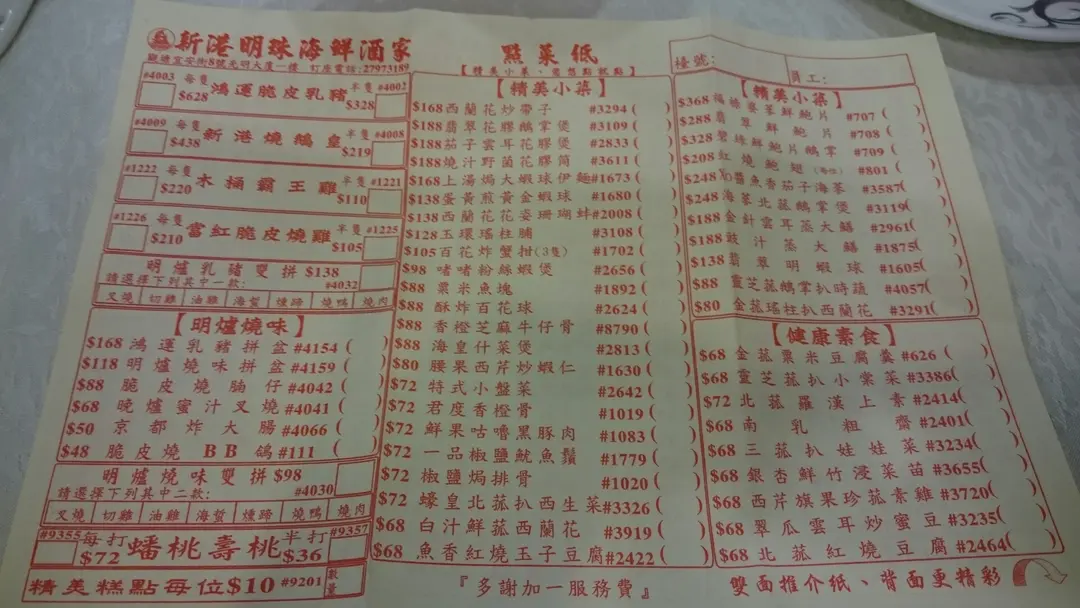 新港明珠海鮮酒家
觀塘宜安街8號光明大廈一樓 訂座電話:27973189
點菜紙
【精美小菜、需您點就點】
檯號:
員工:
#4003 每隻 $628 鴻運脆皮乳豬 半隻 #4002 $328
#4009 每隻 $438 新港燒鵝皇 半隻 #4008 $219
#1222 每隻 $220 木桶霸王雞 半隻 #1221 $110
#1226 每隻 $210 富紅脆皮燒雞 半隻 #1225 $105
明爐乳豬雙拼 $138
請選擇下列其中一款: #4032
叉燒 切雞 油雞 海蜇 燻蹄 燒鴨 燒肉
【明爐燒味】
$168 鴻運乳豬拼盆 #4154 ( )
$118 明爐燒味拼盆 #4159 ( )
$88 脆皮燒腩仔 #4042 ( )
$68 晚爐蜜汁叉燒 #4041 ( )
$50 京都炸大腸 #4066 ( )
$48 脆皮燒BB鴿 #111 ( )
明爐燒味雙拼 $98
請選擇下列其中二款: #4030
叉燒 切雞 油雞 海蜇 燻蹄 燒鴨 燒肉
#9355 每打 $72 蟠桃壽桃 半打 $36 #9357
精美糕點每位$10 #9201 數量
【精美小菜】
$168 西蘭花炒帶子 #3294 ( )
$188 翡翠花膠鵝掌煲 #3109 ( )
$188 茄子雲耳花膠煲 #2833 ( )
$188 燒汁野菌花膠筒 #3611 ( )
$168 上湯焗大蝦球伊麵 #1673 ( )
$138 蛋黃煎黃金蝦球 #1680 ( )
$138 西蘭花花姿珊瑚蚌 #2008 ( )
$128 玉環瑤柱脯 #3108 ( )
$105 百花炸蟹拑(3隻) #1702 ( )
$98 啫啫粉絲蝦煲 #2656 ( )
$88 粟米魚塊 #1892 ( )
$88 酥炸百花球 #2624 ( )
$88 香橙芝麻牛仔骨 #8790 ( )
$88 海皇什菜煲 #2813 ( )
$80 腰果西芹炒蝦仁 #1630 ( )
$72 特式小盤菜 #2642 ( )
$72 君度香橙骨 #1019 ( )
$72 鮮果咕嚕黑豚肉 #1083 ( )
$72 一品椒鹽魷魚鬚 #1779 ( )
$72 椒鹽焗排骨 #1020 ( )
$72 蠔皇北菇扒西生菜 #3326 ( )
$68 白汁鮮菇西蘭花 #3919 ( )
$68 魚香紅燒玉子豆腐 #2422 ( )
【精美小菜】
$368 鮮鮑片 #707 ( )
$288 翡翠鮮鮑片 #708 ( )
$328 碧綠鮮鮑片鵝掌 #709 ( )
$208 紅燒鮑翅(每位) #801 ( )
$248 XO醬魚香茄子海參 #3587 ( )
$248 海參北菇鵝掌煲 #3119 ( )
$188 金針雲耳蒸大鱔 #2961 ( )
$188 豉汁蒸大鱔 #1875 ( )
$138 翡翠明蝦球 #1605 ( )
$88 靈芝菇鵝掌扒時蔬 #4057 ( )
$80 金菇瑤柱扒西蘭花 #3291 ( )
【健康素食】
$68 金菇粟米豆腐羹 #626 ( )
$68 靈芝菇扒小棠菜 #3386 ( )
$72 北菇羅漢上素 #2414 ( )
$68 南乳粗齋 #2401 ( )
$68 三菇扒娃娃菜 #3234 ( )
$68 銀杏鮮竹浸菜苗 #3655 ( )
$68 西芹旗果珍菇素雞 #3720 ( )
$68 翠瓜雲耳炒蜜豆 #3235 ( )
$68 北菇紅燒豆腐 #2464 ( )
『多謝加一服務費』
雙面推介紙、背面更精彩